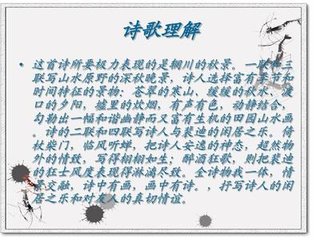 诗歌理解
• 这首诗所要极力表现的是辋川的秋景。一联和三
联写山水原野的深秋晚景，诗人选择富有季节和
时间特征的景物：苍翠的寒山、缓缓的秋水、渡
口的夕阳，墟里的炊烟，有声有色，动静结合，
勾勒出一幅和谐幽静而又富有生机的田园山水画
。诗的二联和四联写诗人与裴迪的闲居之乐。倚
杖柴门，临风听蝉，把诗人安逸的神态，超然物
外的情致，写得栩栩如生；醉酒狂歌，则把裴迪
的狂士风度表现得淋漓尽致。全诗物我一体，情
景交融，诗中有画，画中有诗。，抒写诗人的闲
居之乐和对友人的真切情谊。